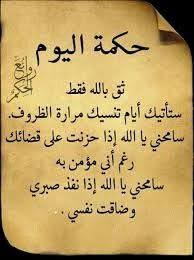 حكمة اليوم
روائع الحكم
ثق بالله فقط
ستأتيك أيام تنسيك مرارة الظروف.
سامحني يا الله إذا حزنت على قضائك
رغم أني مؤمن به
سامحني يا الله إذا نفذ صبري
وضاقت نفسي .